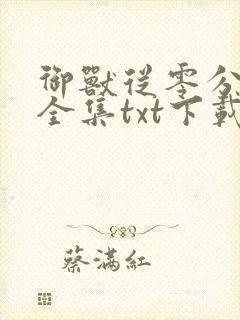 御獸從零分
全集txt下載
蔡滿紅